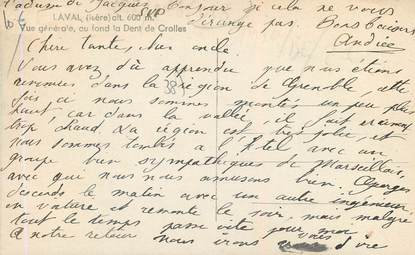 l'adresse de Jacques, bonjour si cela ne vous
dérange pas. Bons baisers
Andrée
LAVAL (Isère) alt. 600 m.
Vue générale, au fond la Dent de Crolles
Chère tante, cher oncle
Vous avez dû apprendre que nous étions
revenus dans la région de Grenoble, cette
fois ci nous sommes montés un peu plus
haut car dans la vallée, il fait vraiment
trop chaud. La région est très jolie, et
nous sommes tombés à l'hôtel avec un
groupe bien sympathiques de Marseillais,
avec qui nous nous amusons bien. Georges
descends le matin avec un autre ingénieur
en voiture et remonte le soir, mais malgré
tout le temps passe vite pour moi
A notre retour nous irons vous dire